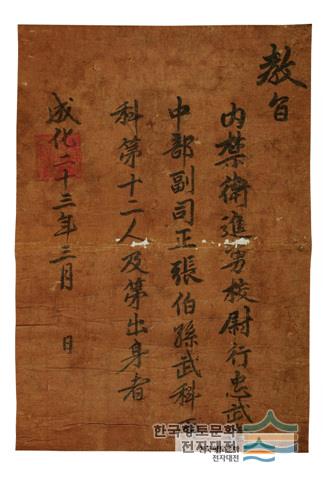 教旨
内禁衛進勇校尉行忠武
中部副司正張伯孫武科
科第十二人及第出身者
成化二十三年三月 日
한국향토문화
전자대전
전자대전